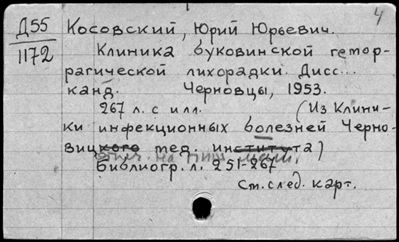 4
Д55
1172
Косовский, Юрий Юрьевич.
Клиника буковинской гемор-
рагической лихорадки. Дисс...
канд. Черновцы, 1953.
267 л. с илл. (Из клини-
ки инфекционных болезней Черно-
вицкого мед. института)
Отпеч. на пиш. маш.
Библиогр. л. 251-267
См. след. карт.